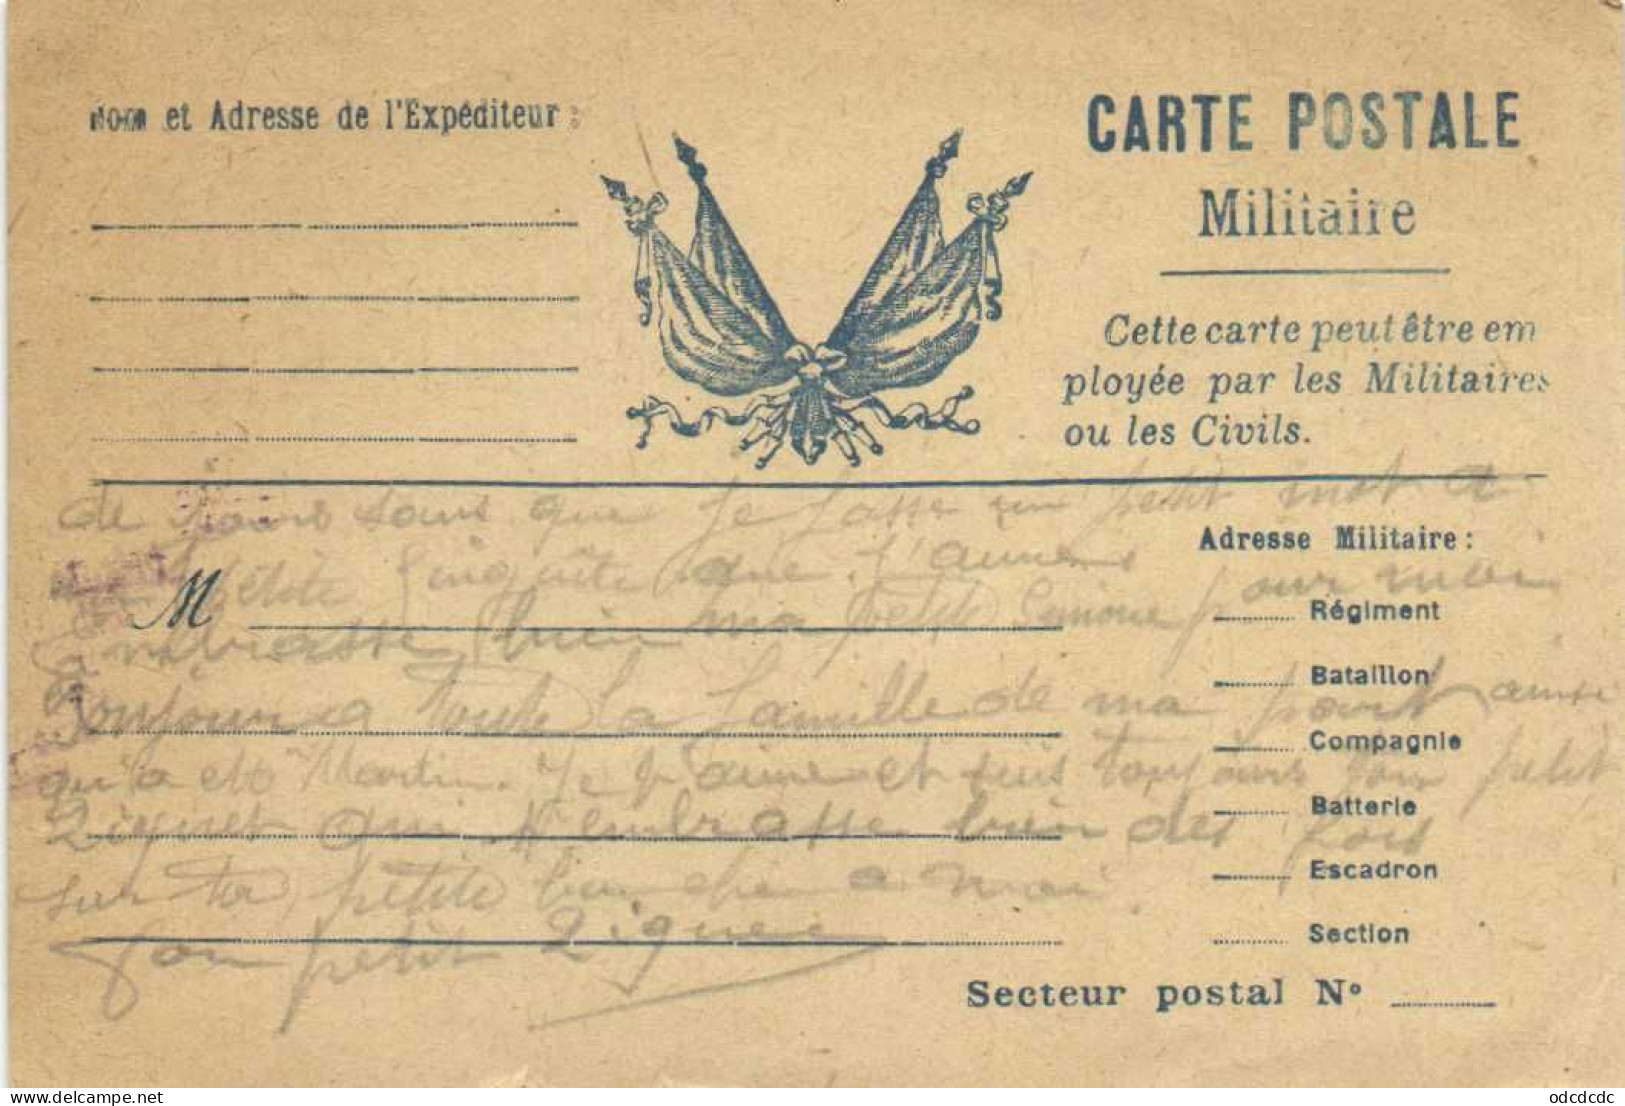 Nom et Adresse de l'Expéditeur :
CARTE POSTALE
Militaire
Cette carte peut être em
ployée par les Militaires
ou les Civils.
de jours sans que je fasse un petit mot a
petite que j'aime
M
Embrasse bien ma petite Simone pour moi
Toujours a toute la famille de ma part ainsi
qu'a Martin. Je t'aime et suis toujours ton petit
qui t'embrasse bien des fois
sur ta petite bouche a moi.
Ton petit
Adresse Militaire :
Régiment
Bataillon
Compagnie
Batterie
Escadron
Section
Secteur postal N°
delcampe.net
odcdcdc